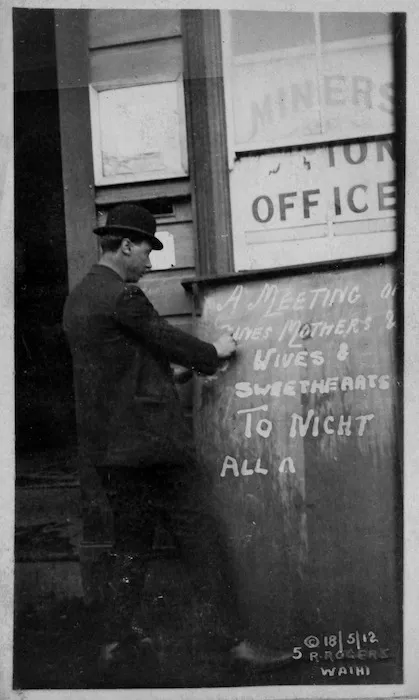 MINERS
UNION
OFFICE
A MEETING OF
WIVES MOTHERS &
WIVES &
SWEETHEARTS
TO NIGHT
ALL
© 18/5/12
5 R. ROGERS
WAIHI